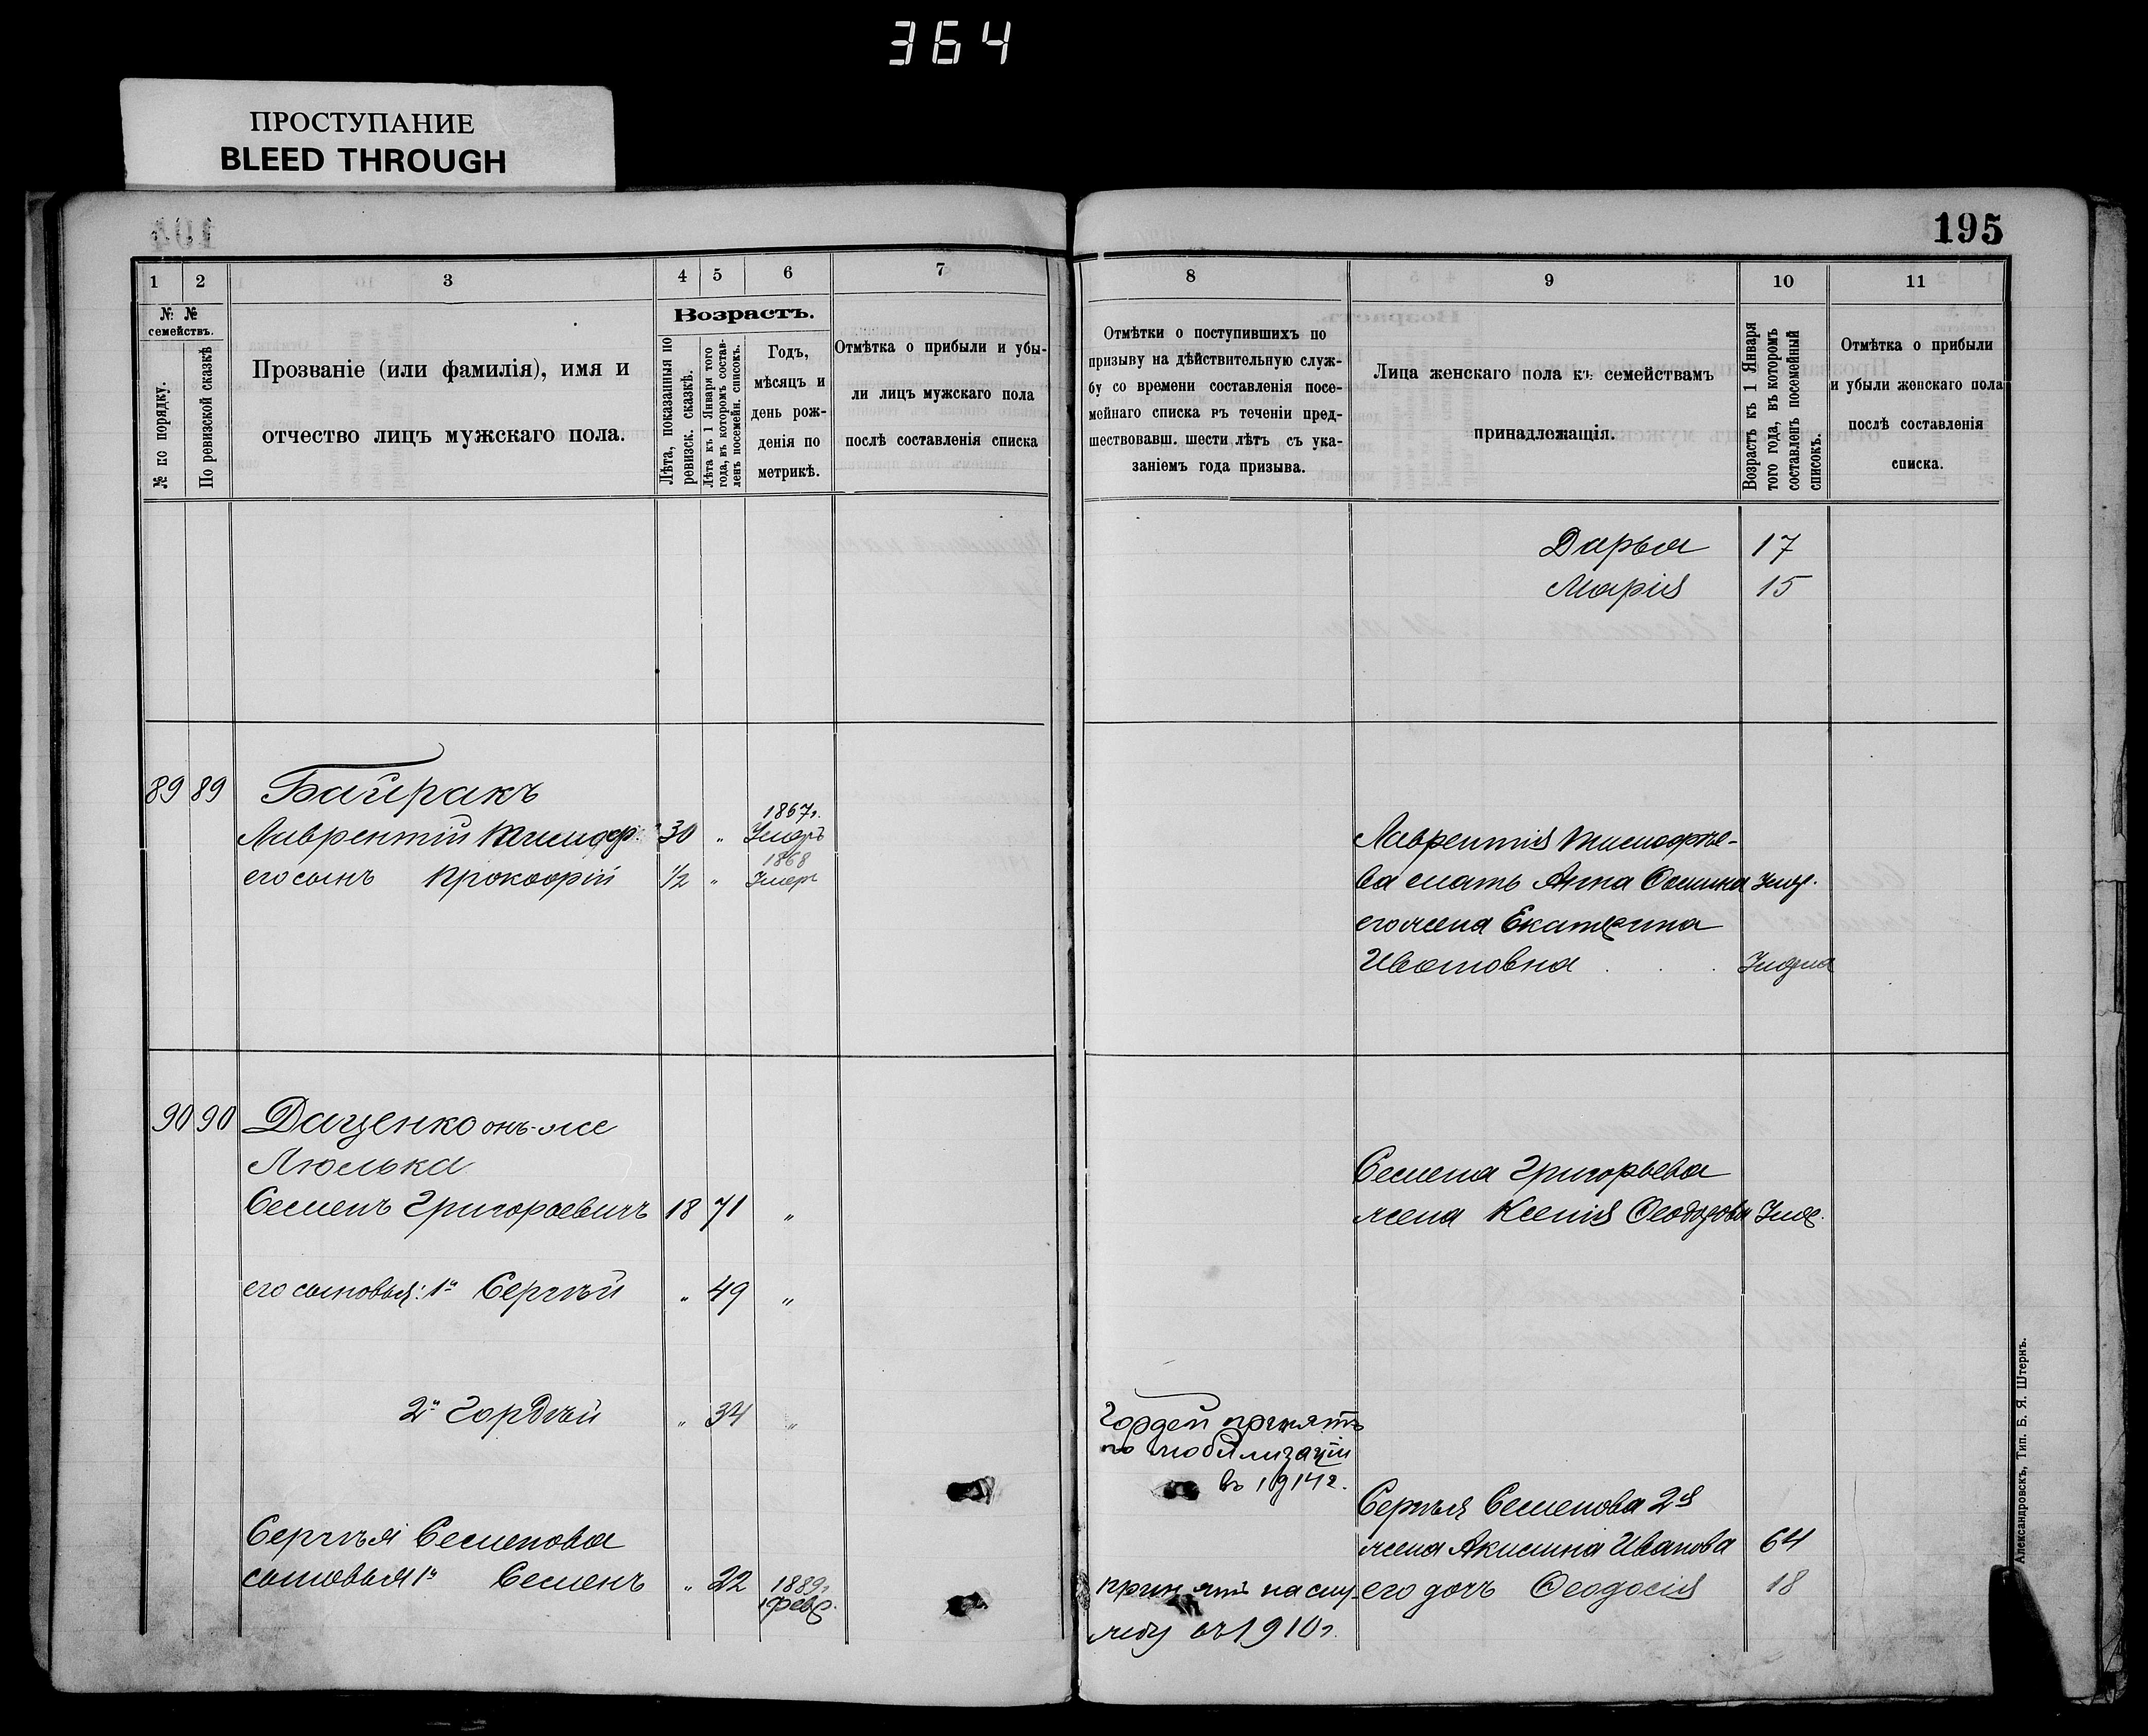 364
ПРОСТУПАНИЕ
BLEED THROUGH
195
1 2 3 4 5 6 7
№ № семействъ.
№ по порядку.
По ревизской сказкѣ
Прозваніе (или фамилія), имя и
отчество лицъ мужскаго пола.
Возрастъ.
Лѣта, показанныя по
ревизск. сказкѣ.
Лѣта къ 1 Января того
года, въ которомъ состав-
ленъ посемейн. списокъ.
Годъ,
мѣсяцъ и
день рож-
денія по
метрикѣ.
Отмѣтка о прибыли и убы-
ли лицъ мужскаго пола
послѣ составленія списка
89 89 Байракъ
1867г.
Лаврентій 30 „ Умеръ
1868
его сынъ Прокофій ½ „ Умеръ
90 90 Даценко онъ-же
Люлька
Семенъ Григорьевичъ 18 71 „
его сыновья: 1й Сергѣй „ 49 „
2й Гордѣй „ 34 „
Сергѣя Семенова
сыновья 1й Семенъ „ 22 1889г.
1 февр.
8 9 10 11
Отмѣтки о поступившихъ по
призыву на дѣйствительную служ-
бу со времени составленія посе-
мейнаго списка въ теченіи пред-
шествовавш. шести лѣтъ съ ука-
заніемъ года призыва.
Лица женскаго пола къ семействамъ
принадлежащія.
Возрастъ къ 1 Января
того года, въ которомъ
составленъ посемейный
списокъ.
Отмѣтка о прибыли
и убыли женскаго пола
послѣ составленія
списка.
Дарья 17
Марія 15
Лаврентія
ва мать Анна Умер.
его жена Екатерина
Ивановна Умерла
Семена Григорьева
жена Ксенія Умер.
Гордей принятъ
по мобилизаціи
въ 1914г.
Сергѣя Семенова 2я
жена Акилина Иванова 64
принятъ на слу- его дочь Феодосія 18
жбу въ 1910г.
Александровскъ, Тип. Б. Я. Штернъ.